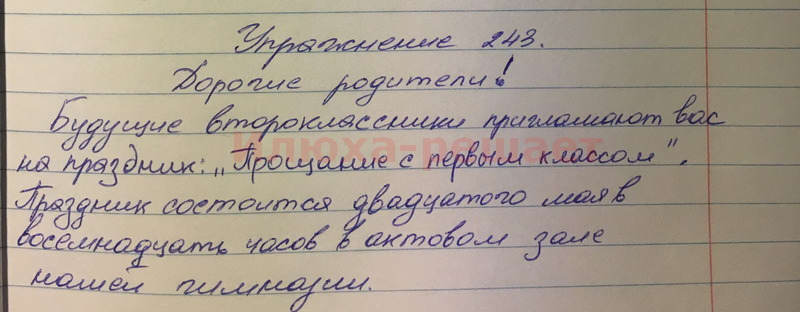 Упражнение 243.
Дорогие родители!
Будущие второклассники приглашают вас
на праздник: „Прощание с первым классом".
Праздник состоится двадцатого мая в
восемнадцать часов в актовом зале
нашей гимназии.
Илюха-решает